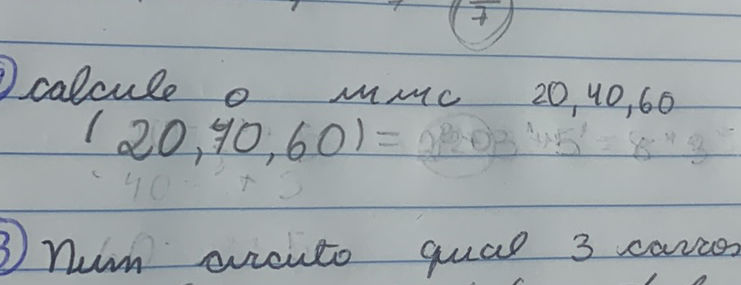 7
calcule o mmc 20,40,60
(20,40,60) =
40 + 5
3) Num circuito qual 3 carros